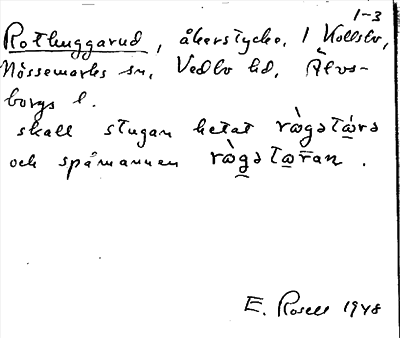 1-3
Rothuggarud, åkerstycke, i Kollsbo,
Nössemarks sn, Vedbo hd, Älvs-
borgs l.
skall stugan hetat
och spåmannen
E. Rosell 1948